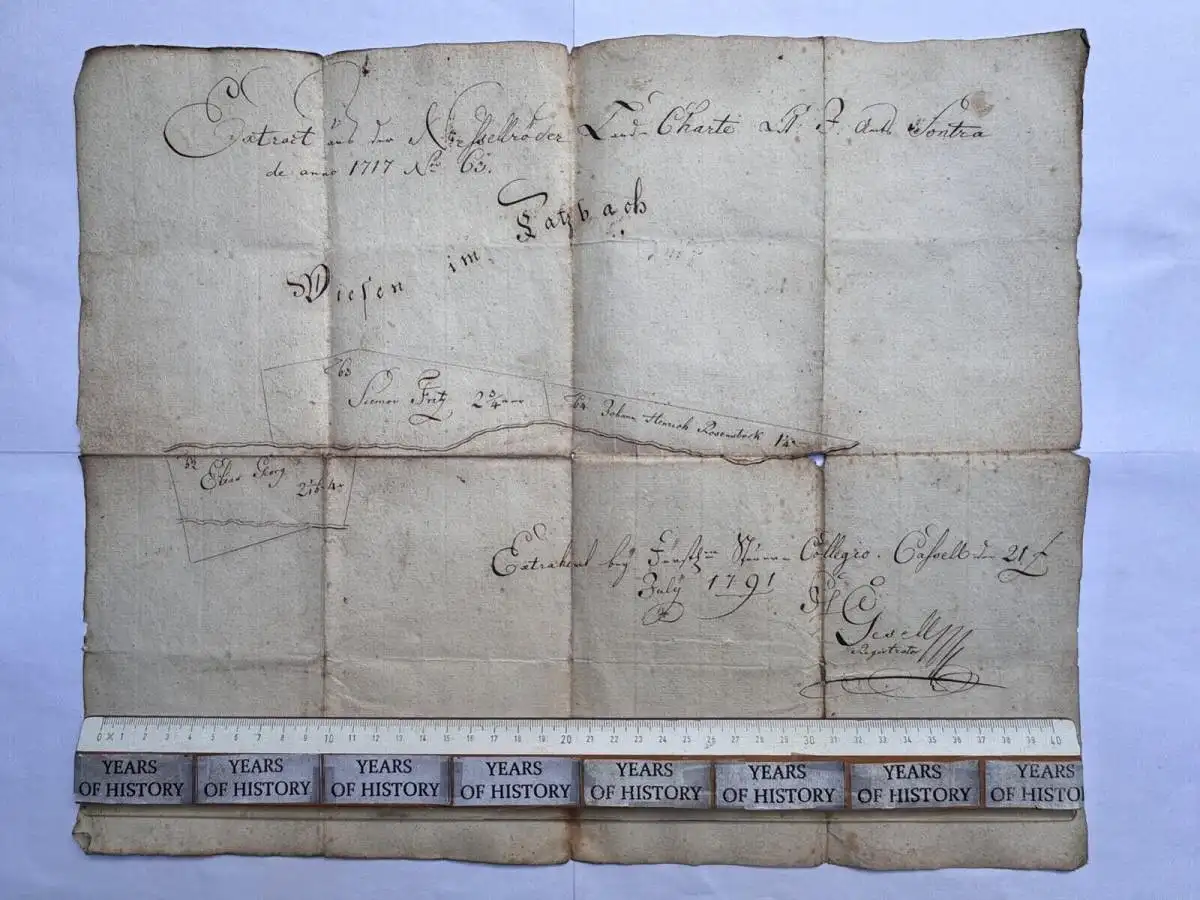 Extract aus der Nesselröder Land Charte Lit. J. Amts Sontra
de anno 1717 No 63.
Wiesen im Katzbach
63
Siemon Fritz 2 3/4
64 Johann Henrich Rosenstock 1 1/4
52
Elias Georg
Extrahirt bey Fürstl. Steuer Collegio. Cassell den 21t
July 1791
Gesell
Registrator
0 1 2 3 4 5 6 7 8 9 10 11 12 13 14 15 16 17 18 19 20 21 22 23 24 25 26 27 28 29 30 31 32 33 34 35 36 37 38 39 40
YEARS OF HISTORY YEARS OF HISTORY YEARS OF HISTORY YEARS OF HISTORY YEARS OF HISTORY YEARS OF HISTORY YEARS OF HISTORY YEARS OF HISTO